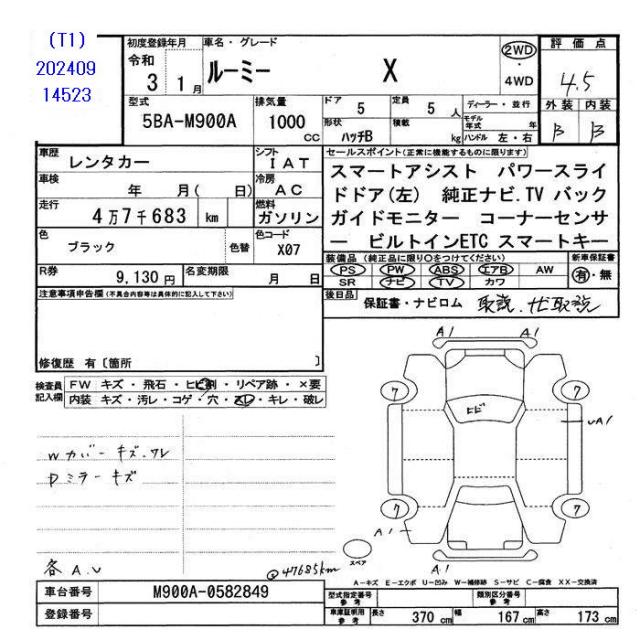 (T1)
202409
14523
初度登録年月 車名・グレード
令和
3 1月 ルーミー X
2WD
4WD
評価点
4.5
外装 内装
B B
型式 排気量 ドア 定員 ディーラー・並行
5BA-M900A 1000 CC 5 5 人
モデル年式 年
形状 積載
ハッチB kg ハンドル 左・右
車歴 レンタカー シフト IAT
車検 年 月( 日) 冷房 AC
走行 4万7千683 km 燃料 ガソリン
色 ブラック 色替 色コード X07
R券 9,130円 名変期限 月 日
セールスポイント(正常に機能するものに限ります)
スマートアシスト パワースライ
ドドア(左) 純正ナビ.TV バック
ガイドモニター コーナーセンサ
ー ビルトインETC スマートキー
装備品(純正品に限り○をつけてください) 新車保証書
PS PW ABS エアB AW 有・無
SR ナビ TV カワ
後日品 保証書・ナビロム 取説、ナビ取説
注意事項申告欄(不具合内容等は具体的に記入して下さい)
修復歴 有〔箇所 〕
検査員
記入欄
FW キズ・飛石・ヒビ割・リペア跡・×要
内装 キズ・汚レ・コゲ・穴・スレ・キレ・破レ
Wカバーキズ、ワレ
Dミラーキズ
各A.U
@47685km
A1 A1
7 7
ヒビ
UA1
7 7
A1
A1
スペア
A-キズ E-エクボ U-凹み W-補修跡 S-サビ C-腐食 XX-交換済
車台番号 M900A-0582849
登録番号
型式指定番号 参考 類別区分番号 参考
車庫証明用 参考 長さ 370 cm 幅 167 cm 高さ 173 cm